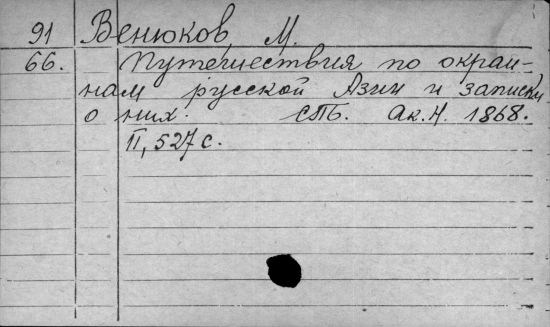 91 Венюков М.
66. Путешествия по окраи-
нам русской Азии и записки
о них. СПБ. Ак.Н. 1868.
II, 527 с.